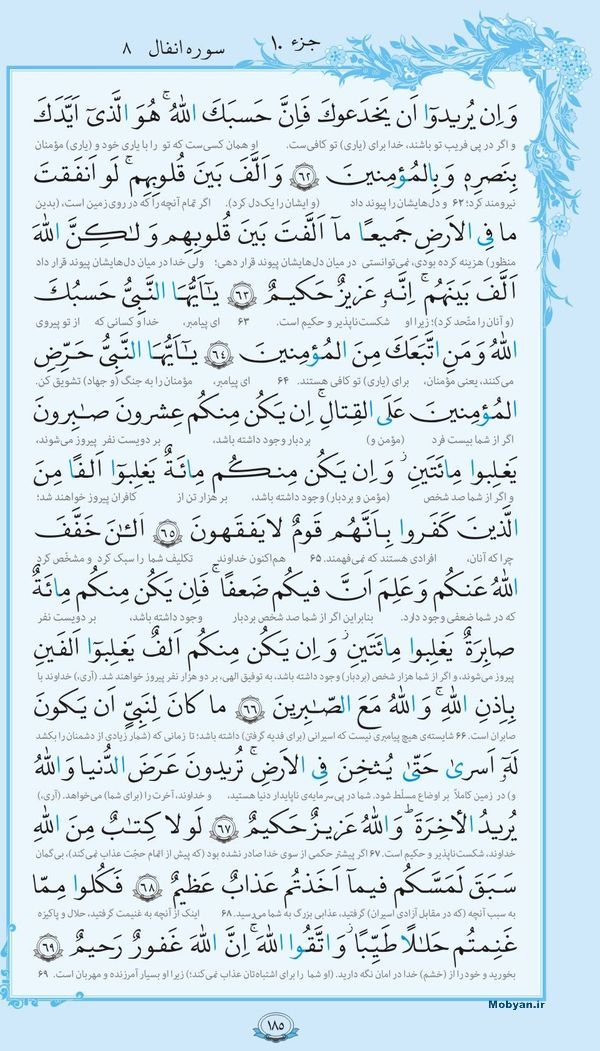 جزء ۱۰
سوره انفال ۸
وَ اِن يُريدوٓا اَن يَخدَعوكَ فَاِنَّ حَسبَكَ اللهُ ۚ هُوَ الَّذىٓ اَيَّدَكَ
و اگر در پی فریب تو باشند، خدا برای (یاری) تو کافی‌ست. او همان کسی‌ست که تو را با یاری خود و (یاری) مؤمنان
بِنَصرِهٖ وَ بِالمُؤمِنينَ ﴿۶۲﴾ وَ اَلَّفَ بَينَ قُلوبِهِم ۚ لَو اَنفَقتَ
نیرومند کرد؛ ۶۲ و دل‌هایشان را پیوند داد (و ایشان را یک‌دل کرد). اگر تمام آنچه را که در روی زمین است، (بدین
ما فِى الاَرضِ جَميعًا مآ اَلَّفتَ بَينَ قُلوبِهِم وَ لٰكِنَّ اللهَ
منظور) هزینه کرده بودی، نمی‌توانستی در میان دل‌هایشان پیوند قرار دهی؛ ولی خدا در میان دل‌هایشان پیوند قرار داد
اَلَّفَ بَينَهُم ۚ اِنَّهٗ عَزيزٌ حَكيمٌ ﴿۶۳﴾ يٰٓاَيُّهَا النَّبِىُّ حَسبُكَ
(و آنان را متّحد کرد)؛ زیرا او شکست‌ناپذیر و حکیم است. ۶۳ ای پیامبر، خدا و کسانی که از تو پیروی
اللهُ وَ مَنِ اتَّبَعَكَ مِنَ المُؤمِنينَ ﴿۶۴﴾ يٰٓاَيُّهَا النَّبِىُّ حَرِّضِ
می‌کنند، یعنی مؤمنان، برای (یاری) تو کافی هستند. ۶۴ ای پیامبر، مؤمنان را به جنگ (و جهاد) تشویق کن.
المُؤمِنينَ عَلَى القِتالِ ۚ اِن يَكُن مِنكُم عِشرونَ صابِرونَ
اگر از شما بیست فرد (مؤمن و) بردبار وجود داشته باشد، بر دویست نفر پیروز می‌شوند،
يَغلِبوا مِائَتَينِ ۚ وَ اِن يَكُن مِنكُم مِائَةٌ يَغلِبوٓا اَلفًا مِنَ
و اگر از شما صد شخص (مؤمن و بردبار) وجود داشته باشد، بر هزار تن از کافران پیروز خواهند شد؛
الَّذينَ كَفَروا بِاَنَّهُم قَومٌ لا يَفقَهونَ ﴿۶۵﴾ اَلـٰٔنَ خَفَّفَ
چرا که آنان، افرادی هستند که نمی‌فهمند. ۶۵ هم‌اکنون خداوند تکلیف شما را سبک کرد و مشخّص کرد
اللهُ عَنكُم وَ عَلِمَ اَنَّ فيكُم ضَعفًا ۚ فَاِن يَكُن مِنكُم مِائَةٌ
که در شما ضعفی وجود دارد. بنابراین اگر از شما صد شخص بردبار وجود داشته باشد، بر دویست نفر
صابِرَةٌ يَغلِبوا مِائَتَينِ ۚ وَ اِن يَكُن مِنكُم اَلفٌ يَغلِبوٓا اَلفَينِ
پیروز می‌شوند، و اگر از شما هزار شخص (بردبار) وجود داشته باشد، به توفیق الهی، بر دو هزار نفر پیروز خواهند شد. (آری،) خداوند با
بِاِذنِ اللهِ ۗ وَ اللهُ مَعَ الصّٰبِرينَ ﴿۶۶﴾ ما كانَ لِنَبِىٍّ اَن يَكونَ
صابران است. ۶۶ شایسته‌ی هیچ پیامبری نیست که اسیرانی (برای فدیه گرفتن) داشته باشد؛ تا زمانی که (شمار زیادی از دشمنان را بکشد
لَهٗٓ اَسرىٰ حَتّىٰ يُثخِنَ فِى الاَرضِ ۚ تُريدونَ عَرَضَ الدُّنيا وَ اللهُ
و) در زمین کاملاً بر اوضاع مسلّط شود. شما در پی سرمایه‌ی ناپایدار دنیا هستید، و خداوند، آخرت را (برای شما) می‌خواهد. (آری،)
يُريدُ الأخِرَةَ ۗ وَ اللهُ عَزيزٌ حَكيمٌ ﴿۶۷﴾ لَولا كِتٰبٌ مِنَ اللهِ
خداوند، شکست‌ناپذیر و حکیم است. ۶۷ اگر پیشتر حکمی از سوی خدا صادر نشده بود (که پیش از اتمام حجّت عذاب نمی‌کند)، بی‌گمان
سَبَقَ لَمَسَّكُم فيمآ اَخَذتُم عَذابٌ عَظيمٌ ﴿۶۸﴾ فَكُلوا مِمّا
به سبب آنچه (که در مقابل آزادی اسیران) گرفتید، عذابی بزرگ به شما می‌رسید. ۶۸ اینک از آنچه به غنیمت گرفتید، حلال و پاکیزه
غَنِمتُم حَلٰلًا طَيِّبًا ۚ وَ اتَّقُوا اللهَ ۚ اِنَّ اللهَ غَفورٌ رَحيمٌ ﴿۶۹﴾
بخورید و خود را از (خشم) خدا در امان نگه دارید. (او شما را برای اشتباهتان عذاب نمی‌کند)؛ زیرا او بسیار آمرزنده و مهربان است. ۶۹
Mobyan.ir
۱۸۵